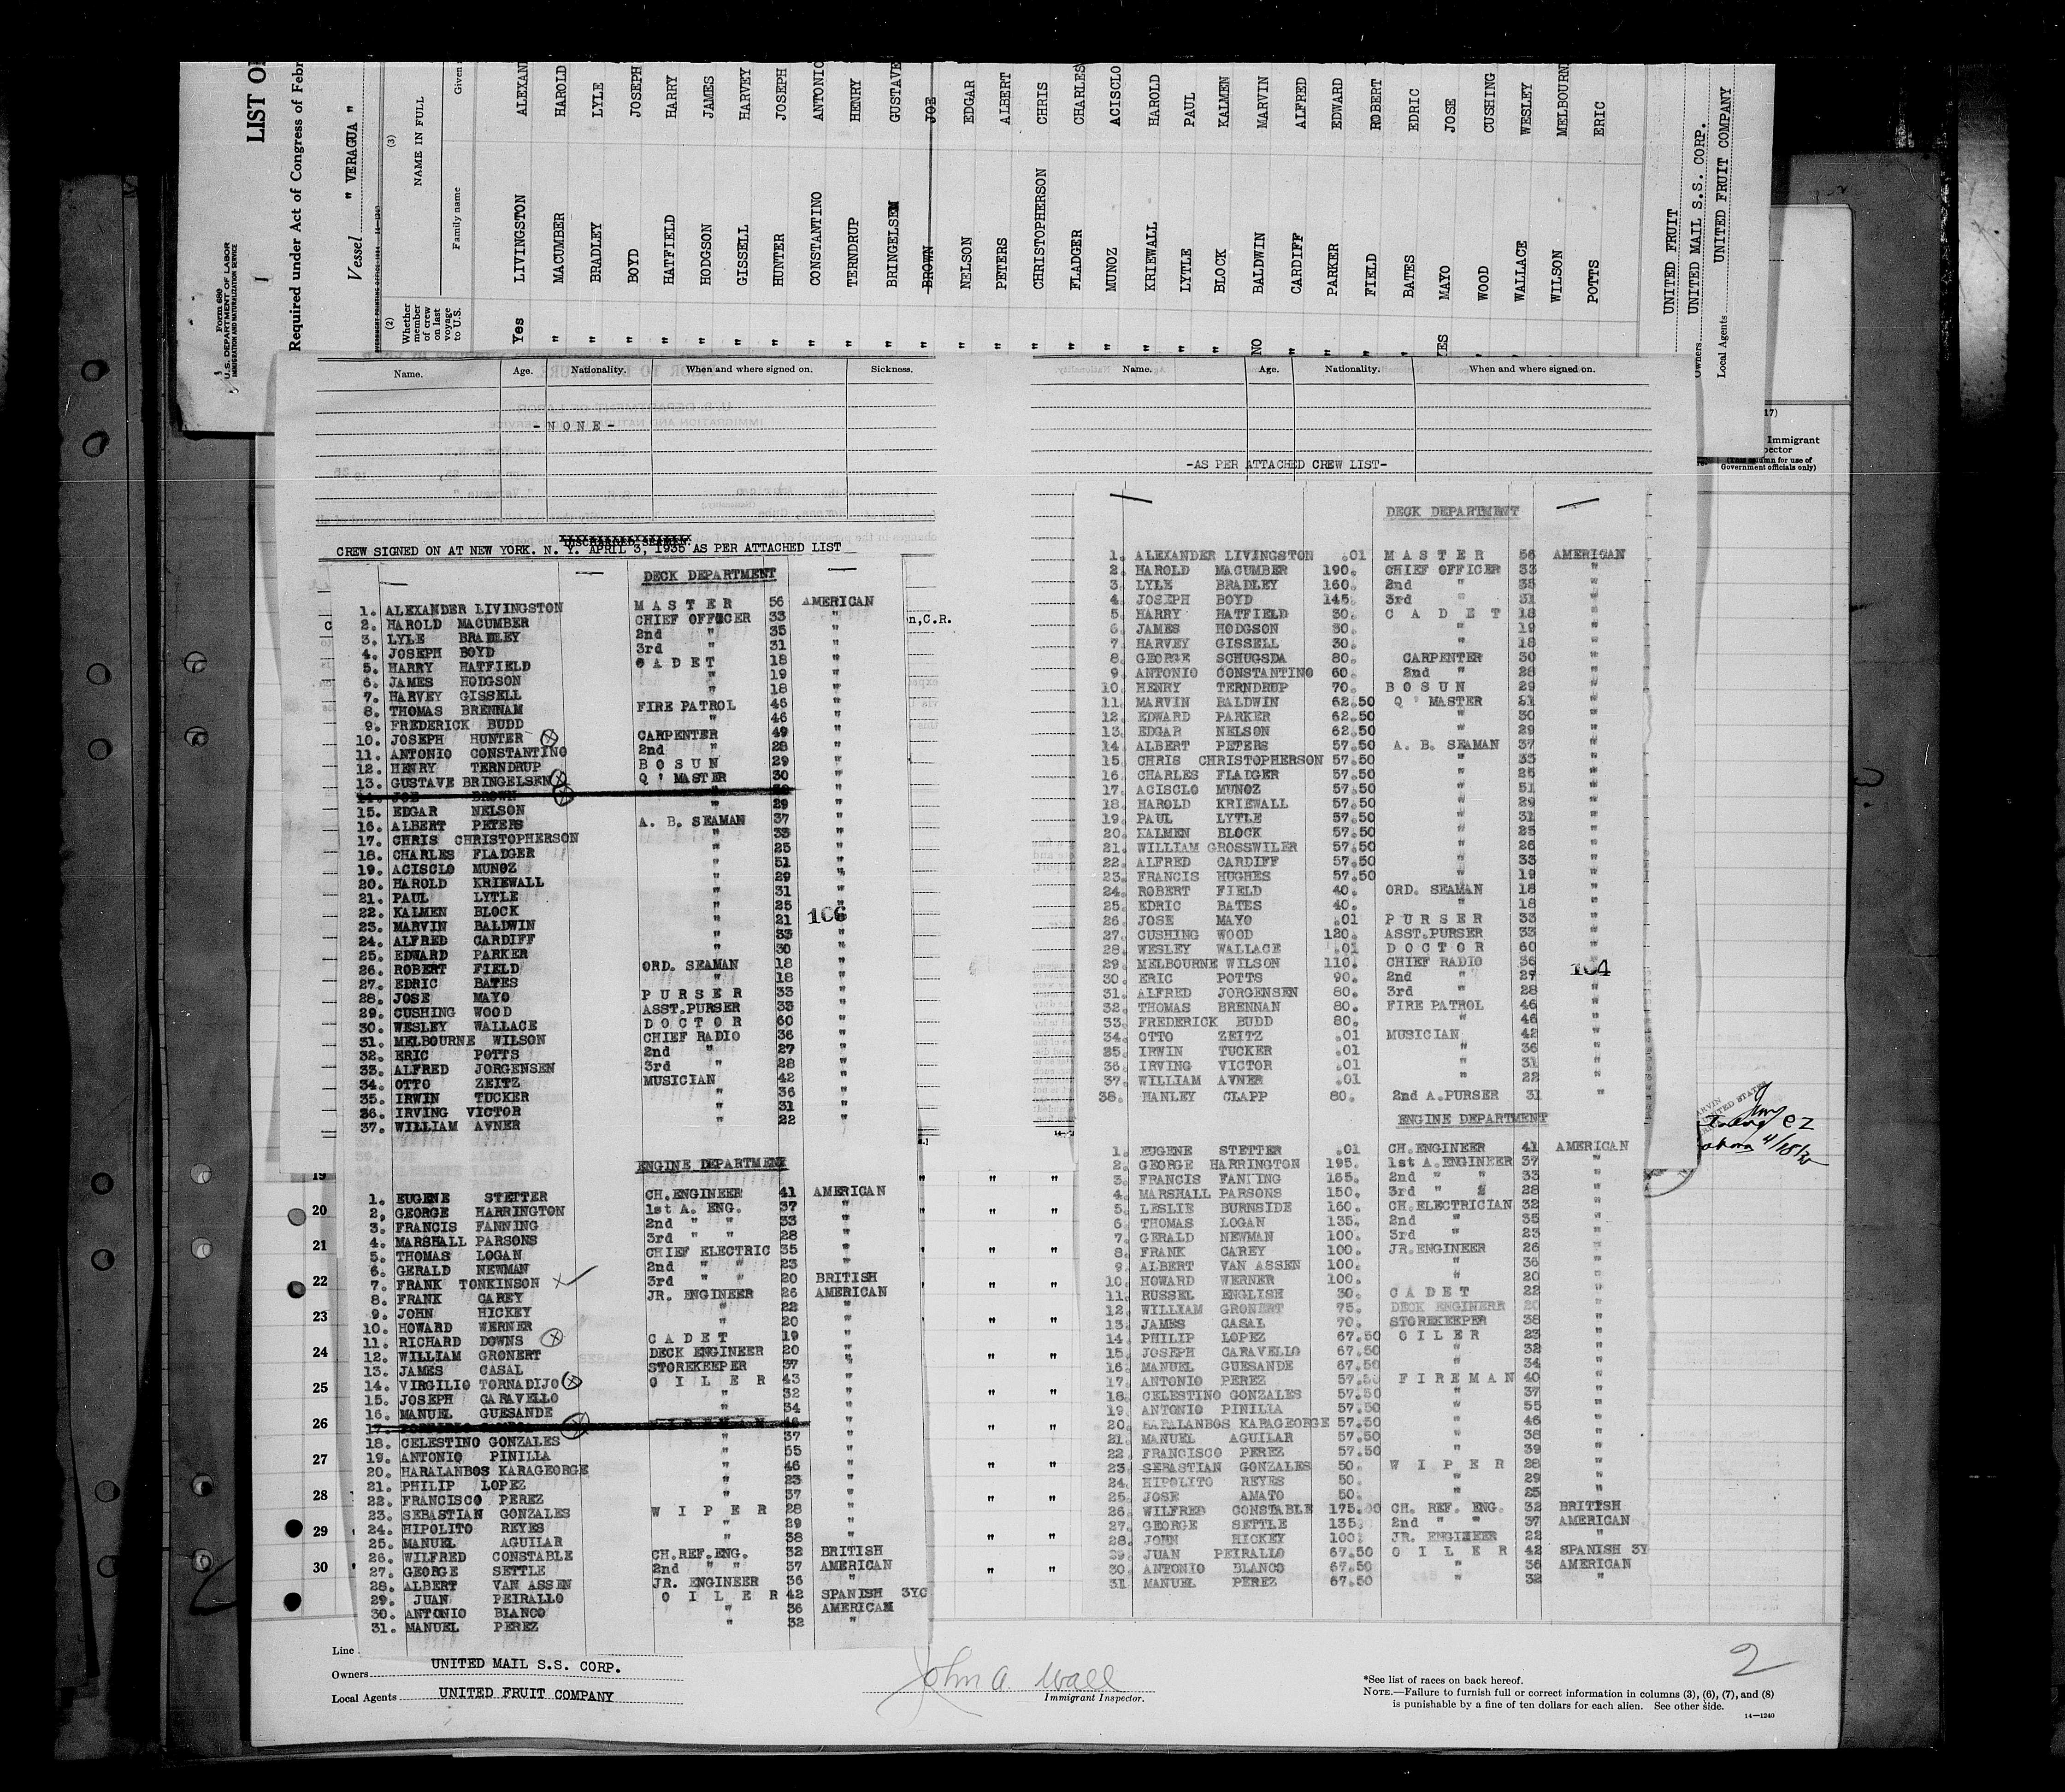 LIST OF
Required under Act of Congress of Febr
Form 680
U.S. DEPARTMENT OF LABOR
IMMIGRATION AND NATURALIZATION SERVICE
1
Vessel " VERAGUA "
(2) (3)
Whether member of crew on last voyage to U.S. NAME IN FULL
Family name Given
Yes LIVINGSTON ALEXAN
" MACUMBER HAROLD
" BRADLEY LYLE
" BOYD JOSEPH
" HATFIELD HARRY
" HODGSON JAMES
" GISSELL HARVEY
" HUNTER JOSEPH
" CONSTANTINO ANTONIO
" TERNDRUP HENRY
" BRINGELSEN GUSTAVE
" BROWN JOE
" NELSON EDGAR
" PETERS ALBERT
" CHRISTOPHERSON CHRIS
" FLADGER CHARLES
" MUNOZ ACISCLO
" KRIEWALL HAROLD
" LYTLE PAUL
" BLOCK KALMEN
NO BALDWIN MARVIN
" CARDIFF ALFRED
" PARKER EDWARD
" FIELD ROBERT
" BATES EDRIC
YES MAYO JOSE
" WOOD CUSHING
" WALLACE WESLEY
" WILSON MELBOURNE
POTTS ERIC
UNITED FRUIT
Owners UNITED MAIL S.S. CORP.
Local Agents UNITED FRUIT COMPANY
Name. Age. Nationality. When and where signed on. Sickness.
- N O N E -
CREW SIGNED ON AT NEW YORK. N. Y. APRIL 3, 1935 AS PER ATTACHED LIST
DECK DEPARTMENT
1. ALEXANDER LIVINGSTON M A S T E R 56 AMERICAN
2. HAROLD MACUMBER CHIEF OFFICER 33 "
3. LYLE BRADLEY 2nd " 35 "
4. JOSEPH BOYD 3rd " 31 "
5. HARRY HATFIELD C A D E T 18 "
6. JAMES HODGSON " 19 "
7. HARVEY GISSELL " 18 "
8. THOMAS BRENNAM FIRE PATROL 46 "
9. FREDERICK BUDD " 46 "
10. JOSEPH HUNTER CARPENTER 49 "
11. ANTONIO CONSTANTINO 2nd " 28 "
12. HENRY TERNDRUP B O S U N 29 "
13. GUSTAVE BRINGELSEN Q ' MASTER 30 "
14. JOE BROWN
15. EDGAR NELSON " 29 "
16. ALBERT PETERS A. B. SEAMAN 37 "
17. CHRIS CHRISTOPHERSON " 33 "
18. CHARLES FLADGER " 25 "
19. ACISCLO MUNOZ " 51 "
20. HAROLD KRIEWALL " 29 "
21. PAUL LYTLE " 31 "
22. KALMEN BLOCK " 25 "
106
23. MARVIN BALDWIN " 21 "
24. ALFRED CARDIFF " 33 "
25. EDWARD PARKER " 30 "
26. ROBERT FIELD ORD. SEAMAN 18 "
27. EDRIC BATES " 18 "
28. JOSE MAYO P U R S E R 33 "
29. CUSHING WOOD ASST.PURSER 33 "
30. WESLEY WALLACE D O C T O R 60 "
31. MELBOURNE WILSON CHIEF RADIO 36 "
32. ERIC POTTS 2nd " 27 "
33. ALFRED JORGENSEN 3rd " 28 "
34. OTTO ZEITZ MUSICIAN 42 "
35. IRWIN TUCKER " 36 "
36. IRVING VICTOR " 31 "
37. WILLIAM AVNER " 22 "
ENGINE DEPARTMENT
1. EUGENE STETTER CH.ENGINEER 41 AMERICAN
2. GEORGE HARRINGTON 1st A. ENG. 37 "
3. FRANCIS FANNING 2nd " " 33 "
4. MARSHALL PARSONS 3rd " " 28 "
5. THOMAS LOGAN CHIEF ELECTRIC 35 "
6. GERALD NEWMAN 2nd " " 23 "
7. FRANK TONKINSON 3rd " " 20 BRITISH
8. FRANK CAREY JR. ENGINEER 26 AMERICAN
9. JOHN HICKEY " 22 "
10. HOWARD WERNER " 20 "
11. RICHARD DOWNS C A D E T 19 "
12. WILLIAM GRONERT DECK ENGINEER 20 "
13. JAMES CASAL STOREKEEPER 37 "
14. VIRGILIO TORNADIJO O I L E R 43 "
15. JOSEPH CARAVELLO " 32 "
16. MANUEL GUESANDE " 34 "
17.
18. CELESTINO GONZALES " 37 "
19. ANTONIO PINILLA " 55 "
20. HARALANBOS KARAGEORGE " 46 "
21. PHILIP LOPEZ " 23 "
22. FRANCISCO PEREZ " 37 "
23. SEBASTIAN GONZALES W I P E R 28 "
24. HIPOLITO REYES " 29 "
25. MANUEL AGUILAR " 38 "
26. WILFRED CONSTABLE CH.REF.ENG. 32 BRITISH
27. GEORGE SETTLE 2nd " " 37 AMERICAN
28. ALBERT VAN ASSEN JR. ENGINEER 36 "
29. JUAN PEIRALLO O I L E R 42 SPANISH 3YC
30. ANTONIO BLANCO " 36 AMERICAN
31. MANUEL PEREZ " 32 "
Name. Age. Nationality. When and where signed on.
-AS PER ATTACHED CREW LIST-
DECK DEPARTMENT
1. ALEXANDER LIVINGSTON .01 M A S T E R 56 AMERICAN
2. HAROLD MACUMBER 190. CHIEF OFFICER 33 "
3. LYLE BRADLEY 160. 2nd " 35 "
4. JOSEPH BOYD 145. 3rd " 31 "
5. HARRY HATFIELD 30. C A D E T 18 "
6. JAMES HODGSON 30. " 19 "
7. HARVEY GISSELL 30. " 18 "
8. GEORGE SCHUGSDA 80. CARPENTER 30 "
9. ANTONIO CONSTANTINO 60. 2nd " 28 "
10. HENRY TERNDRUP 70. B O S U N 29 "
11. MARVIN BALDWIN 62.50 Q ' MASTER 21 "
12. EDWARD PARKER 62.50 " 30 "
13. EDGAR NELSON 62.50 " 29 "
14. ALBERT PETERS 57.50 A. B. SEAMAN 37 "
15. CHRIS CHRISTOPHERSON 57.50 " 33 "
16. CHARLES FLADGER 57.50 " 25 "
17. ACISCLO MUNOZ 57.50 " 51 "
18. HAROLD KRIEWALL 57.50 " 29 "
19. PAUL LYTLE 57.50 " 31 "
20. KALMEN BLOCK 57.50 " 25 "
21. WILLIAM GROSSWILER 57.50 " 26 "
22. ALFRED CARDIFF 57.50 " 33 "
23. FRANCIS HUGHES 57.50 " 19 "
24. ROBERT FIELD 40. ORD. SEAMAN 18 "
25. EDRIC BATES 40. " 18 "
26. JOSE MAYO .01 P U R S E R 33 "
27. CUSHING WOOD 120. ASST.PURSER 33 "
28. WESLEY WALLACE .01 D O C T O R 60 "
29. MELBOURNE WILSON 110. CHIEF RADIO 36 "
104
30. ERIC POTTS 90. 2nd " 27 "
31. ALFRED JORGENSEN 80. 3rd " 28 "
32. THOMAS BRENNAN 80. FIRE PATROL 46 "
33. FREDERICK BUDD 80. " 46 "
34. OTTO ZEITZ .01 MUSICIAN 42 "
35. IRWIN TUCKER .01 " 36 "
36. IRVING VICTOR .01 " 31 "
37. WILLIAM AVNER .01 " 22 "
38. HANLEY CLAPP 80. 2nd A.PURSER 31 "
ENGINE DEPARTMENT
1. EUGENE STETTER .01 CH.ENGINEER 41 AMERICAN
2. GEORGE HARRINGTON 195. 1st A.ENGINEER 37 "
3. FRANCIS FANNING 165. 2nd " " 33 "
4. MARSHALL PARSONS 150. 3rd " " 28 "
5. LESLIE BURNSIDE 160. CH.ELECTRICIAN 32 "
6. THOMAS LOGAN 135. 2nd " 35 "
7. GERALD NEWMAN 100. 3rd " 23 "
8. FRANK CAREY 100. JR.ENGINEER 26 "
9. ALBERT VAN ASSEN 100. " 36 "
10. HOWARD WERNER 100. " 20 "
11. RUSSEL ENGLISH 30. C A D E T 22 "
12. WILLIAM GRONERT 75. DECK ENGINERR 20 "
13. JAMES CASAL 70. STOREKEEPER 38 "
14. PHILIP LOPEZ 67.50 O I L E R 23 "
15. JOSEPH CARAVELLO 67.50 " 32 "
16. MANUEL GUESANDE 67.50 " 34 "
17. ANTONIO PEREZ 57.50 F I R E M A N 40 "
18. CELESTINO GONZALES 57.50 " 37 "
19. ANTONIO PINILLA 57.50 " 55 "
20. HARALANBOS KARAGEORGE 57.50 " 46 "
21. MANUEL AGUILAR 57.50 " 38 "
22. FRANCISCO PEREZ 57.50 " 39 "
23. SEBASTIAN GONZALES 50. W I P E R 28 "
24. HIPOLITO REYES 50. " 29 "
25. JOSE AMATO 50. " 25 "
26. WILFRED CONSTABLE 175.00 CH. REF. ENG. 32 BRITISH
27. GEORGE SETTLE 135. 2nd " " 37 AMERICAN
28. JOHN HICKEY 100. JR. ENGINEER 22 "
29. JUAN PEIRALLO 67.50 O I L E R 42 SPANISH 3Y
30. ANTONIO BLANCO 67.50 " 36 AMERICAN
31. MANUEL PEREZ 67.50 " 32 "
n,C.R.
17)
Immigrant
pector
(This column for use of
Government officials only)
19
20
21
22
23
24
25
26
27
28
29
30
Line
Owners UNITED MAIL S.S. CORP.
Local Agents UNITED FRUIT COMPANY
John A. Wall
Immigrant Inspector.
2
*See list of races on back hereof.
NOTE.—Failure to furnish full or correct information in columns (3), (6), (7), and (8)
is punishable by a fine of ten dollars for each alien. See other side.
14—1240